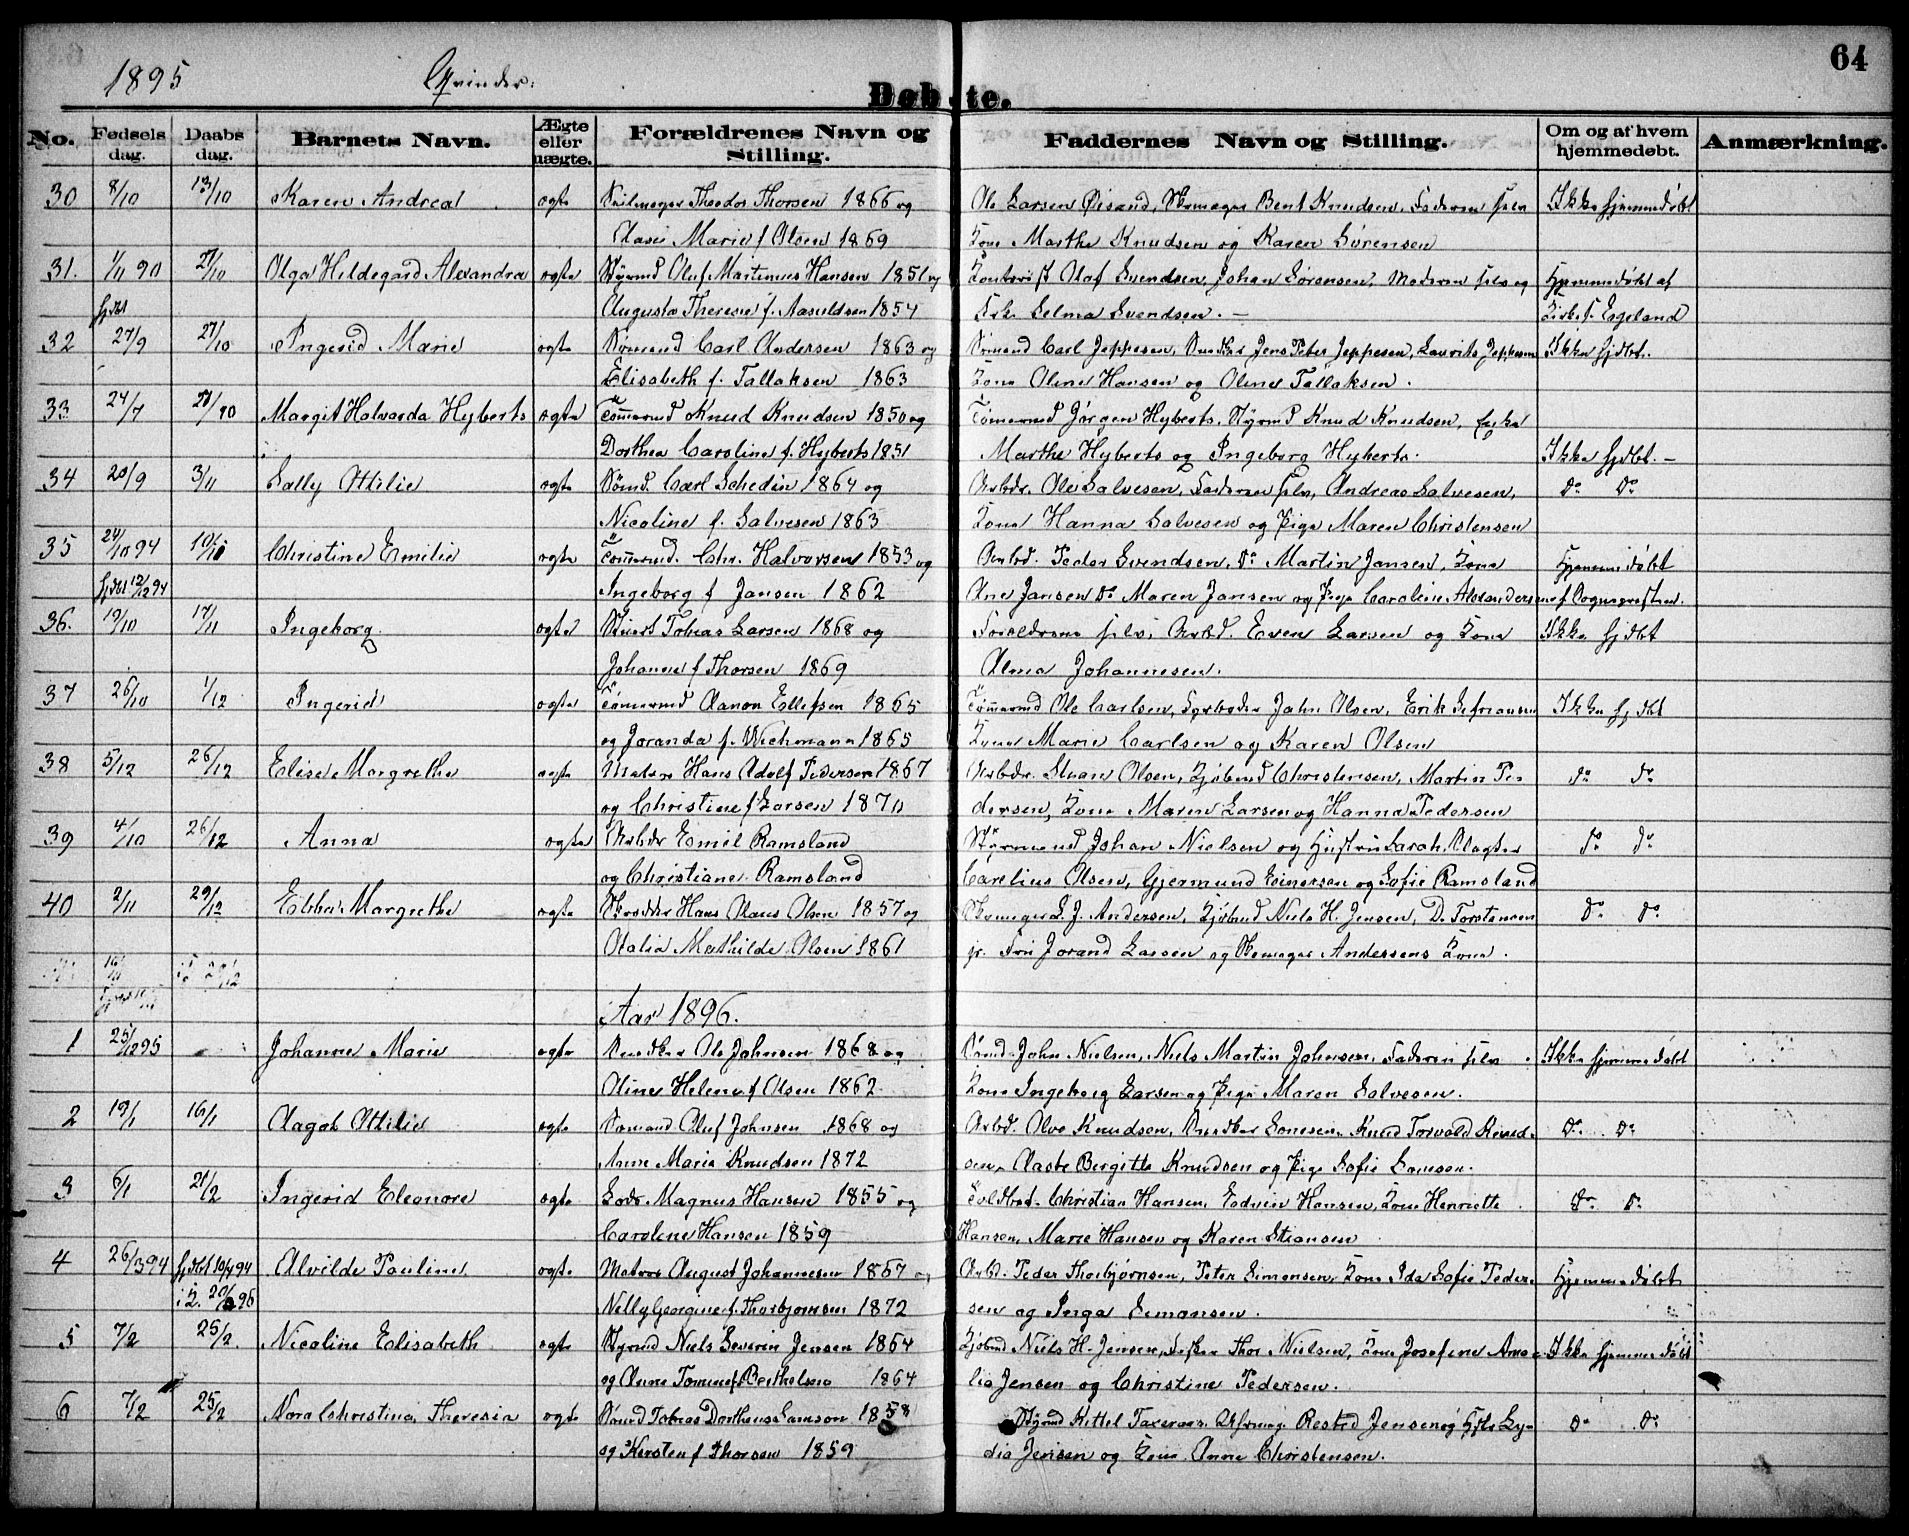 1895 Qvinder:
64
Døbte.
No. Fødsels dag. Daabs dag. Barnets Navn. Ægte eller uægte. Forældrenes Navn og Stilling. Faddernes Navn og Stilling. Om og af hvem hjemmedøbt. Anmærkning.
30 8/10 13/10 Karen Andrea ægte Seilmager Theodor Thorsen 1866 og Ole Larsen Øisand, Skomager Bent Knudsen, Faderen selv Ikke hjemmedøbt
Marie f Olsen 1869 Kone Marthe Knudsen og Karen Sörensen
31. 1/11 90 27/10 Olga Hildegard Alexandra ægte Styrmd Oluf Martinius Hansen 1851 og Olaf Svendsen, Johan Sörensen, Moderen selv og Hjemmedöbt af
hjdbt Augusta Therese f. Aasuldsen 1854 Frk. Selma Svendsen. – Kirkes. Egeland
32 27/9 27/10 Ingerid Marie ægte Sömand Carl Andersen 1863 og Sömand Carl Jeppesen, Snedker Jens Peter Jeppesen, Laurits Jeppesen Ikke hjdbt.
Elisabeth f. Tallaksen 1863 Kone Oline Hansen og Oline Tallaksen.
33 24/7 27/10 Margit Halvarda Hyberts ægte Tömermd Knud Knudsen 1850 og Tömermd Jörgen Hyberts, Styrmd Knud Knudsen, Enke
Dorthea Caroline f. Hyberts 1851 Marthe Hyberts og Ingeborg Hyberts. Ikke hjdbt. –
34 20/9 3/11 Sally Ottilie ægte Sömd. Carl Schedin 1864 og Arbdr. Ole Salvesen, Faderen selv, Andreas Salvesen, do do
Nicoline f. Salvesen 1863 Kone Hanna Salvesen og Pige Maren Christensen
35 24/10 94 10/11 Christine Emilie ægte Tömermd. Chr. Halvorsen 1853 og Arbd. Peder Svendsen, do Martin Jansen, Kone Hjemmedöbt
hjdbt 12/12 94 Ingeborg f Jansen 1862 Ane Jansen do Maren Jansen og Pige Caroline Alexandersen af Sognepresten.
36. 19/10 17/11 Ingeborg ægte Stuert Tobias Larsen 1868 og Forældrene selv, Arbd. Even Larsen og Kone Ikke hjdbt
Johanne f Thorsen 1869 Alma Johannesen.
37 26/10 1/12 Ingerid ægte Tömermd Aanon Ellefsen 1865 Tömermd Ole Carlsen, Fyrböder John Olsen, Erik Ikke hjdbt
og Joranda f. Wichmann 1865 Kone Marie Carlsen og Karen Olsen
38 5/12 26/12 Elise Margrethe ægte Matros Hans Adolf Pedersen 1867 Arbdr. Olsen, Kjöbmd Christensen, Martin Pe- do do
og Christine f Larsen 1870 dersen, Kone Maren Larsen og Hanna Pedersen
39 4/10 26/12 Anna ægte Arbdr Emil Ramsland Styrmand Johan Nielsen og Hustru Sarah, Slagter do do
og Christiane Ramsland Carelius Olsen, Gjermund Einersen og Sofie Ramsland
40 2/11 29/12 Ebba Margrethe ægte Skrædder Hans Claus Olsen 1857 og Skomager S. J. Andersen, Kjöbmd Niels H. Jensen, D. Torstensen do do
Otalia Mathilde Olsen 1861 jr. Fru Jorand Larsen og Skomager Andersens Kone.
Aar 1896.
1 25/12 95 Johanne Marie ægte Snedker Ole Johnsen 1868 og Sömd. John Nielsen, Niels Martin Johnsen, Faderen selv Ikke hjemmedöbt
Oline Helene f Olsen 1862 Kone Ingeborg Larsen og Pige Maren Salvesen.
2 19/1 16/1 Aagot Ottilie ægte Sömand Oluf Johnsen 1868 og Arbd. Olve Knudsen, Snedker Knud Torvald Knud- do do
Anne Marie Knudsen 1872 sen, Aaste Bergitte Knudsen og Pige Sofie
3 6/1 21/2 Ingerid Eleonore ægte Lods Magnus Hansen 1855 og Toldbet. Christian Hansen, Edvin Hansen, Kone Henriette do do
Caroline Hansen 1859 Hansen, Marie Hansen og Karen Stiansen
4 26/3 94 hjdbt 10/4 94 Alvilde Pauline ægte Matros August Johannesen 1867 og Arbd. Peder Thorbjörnsen, Peter Simonsen, Kone Ida Sofie Peder- Hjemmedöbt
i K. 20/2 96 Nelly Georgine f. Thorbjornsen 1872 sen og Inga Simonsen.
5 7/2 25/2. Nicoline Elisabeth ægte Styrmd Niels Severin Jensen 1864 Kjöbmd Niels H. Jensen, Fisker Thor Nielsen, Kone Josefine Ama- Ikke hjemmedöbt
og Anne Tomine f Berthelsen 1864 lia Jensen og Christine Pedersen.
6 7/2 25/2 Nora Christine Theresia ægte Sömd Tobias Dortheus Samson 1858 Styrmd Kittel Rested Jensen og Hustru Ly- do do
og Kirsten f Thorsen 1859 dia Jensen og Kone Anne Christensen.